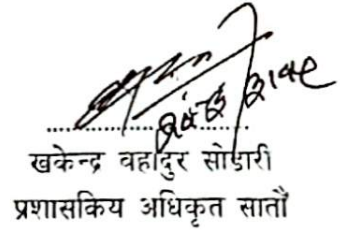 खकेन्द्र वहादुर सोडारी
प्रशासकिय अधिकृत सातौं